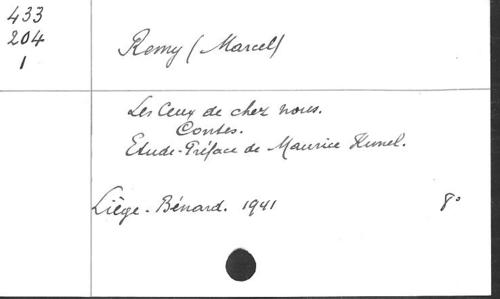 433
204
1
Remy (Marcel)
Les Ceux de chez nous.
Contes.
Etude-Préface de Maurice Kunel.
Liège - Bénard. 1941
8°